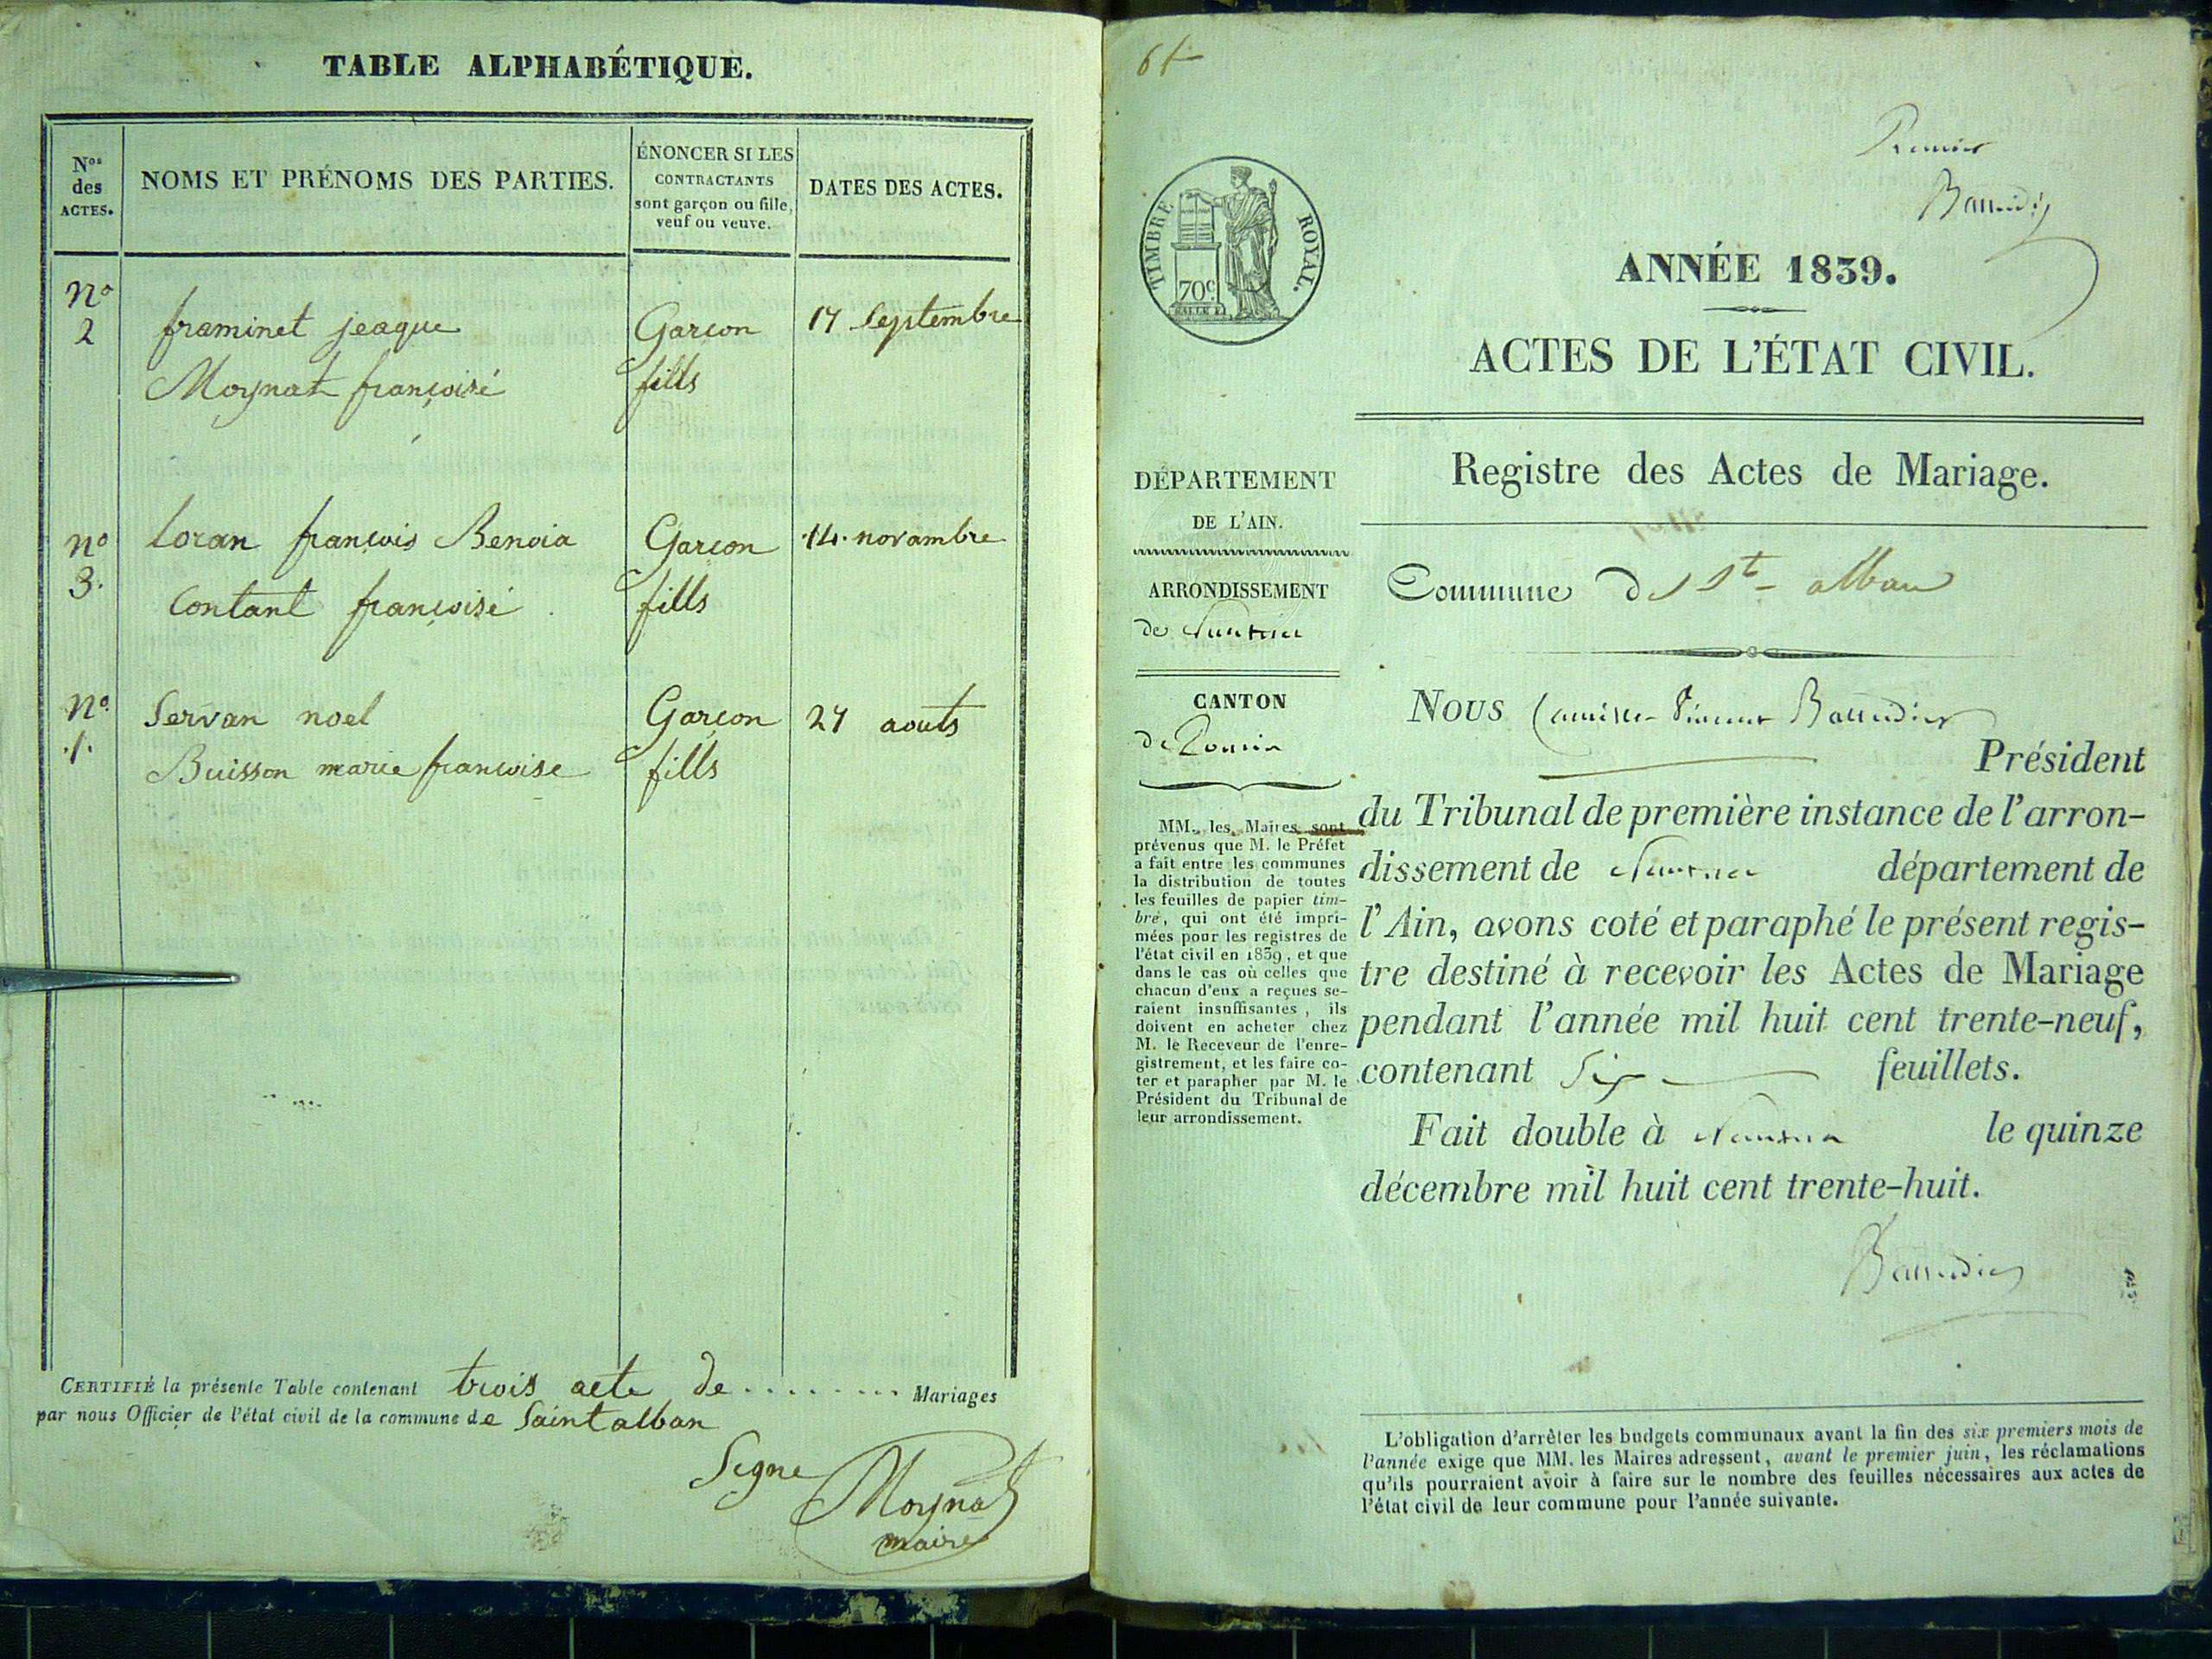 TABLE ALPHABÉTIQUE.
Nos des ACTES.
NOMS ET PRÉNOMS DES PARTIES.
ÉNONCER SI LES
CONTRACTANTS
sont garçon ou fille,
veuf ou veuve.
DATES DES ACTES.
no 2
framinet jeaque Garcon 17 Septembre
Moynat françoisé fills
no 3.
loran françois Benoia Garcon 14. novambre
Contant françoisé fills
no 1.
Servan noel Garçon 27 aouts
Buisson marie francoise fills
CERTIFIÉ la présente Table contenant trois acte de ......... Mariages
par nous Officier de l'état civil de la commune de Saint alban
Signe Moynat
maire
Premier
Baudier
TIMBRE ROYAL.
70c
ANNÉE 1839.
ACTES DE L'ÉTAT CIVIL.
Registre des Actes de Mariage.
DÉPARTEMENT
DE L'AIN.
ARRONDISSEMENT
de Nantua
CANTON
de Poncin
MM. les Maires sont
prévenus que M. le Préfet
a fait entre les communes
la distribution de toutes
les feuilles de papier tim-
bré, qui ont été impri-
mées pour les registres de
l'état civil en 1839, et que
dans le cas où celles que
chacun d'eux a reçues se-
raient insuffisantes, ils
doivent en acheter chez
M. le Receveur de l'enre-
gistrement, et les faire co-
ter et parapher par M. le
Président du Tribunal de
leur arrondissement.
Commune de St- alban
Nous
Président
du Tribunal de première instance de l'arron-
dissement de Nantua département de
l'Ain, avons coté et paraphé le présent regis-
tre destiné à recevoir les Actes de Mariage
pendant l'année mil huit cent trente-neuf,
contenant Six feuillets.
Fait double à Nantua le quinze
décembre mil huit cent trente-huit.
L'obligation d'arrêter les budgets communaux avant la fin des six premiers mois de
l'année exige que MM. les Maires adressent, avant le premier juin, les réclamations
qu'ils pourraient avoir à faire sur le nombre des feuilles nécessaires aux actes de
l'état civil de leur commune pour l'année suivante.